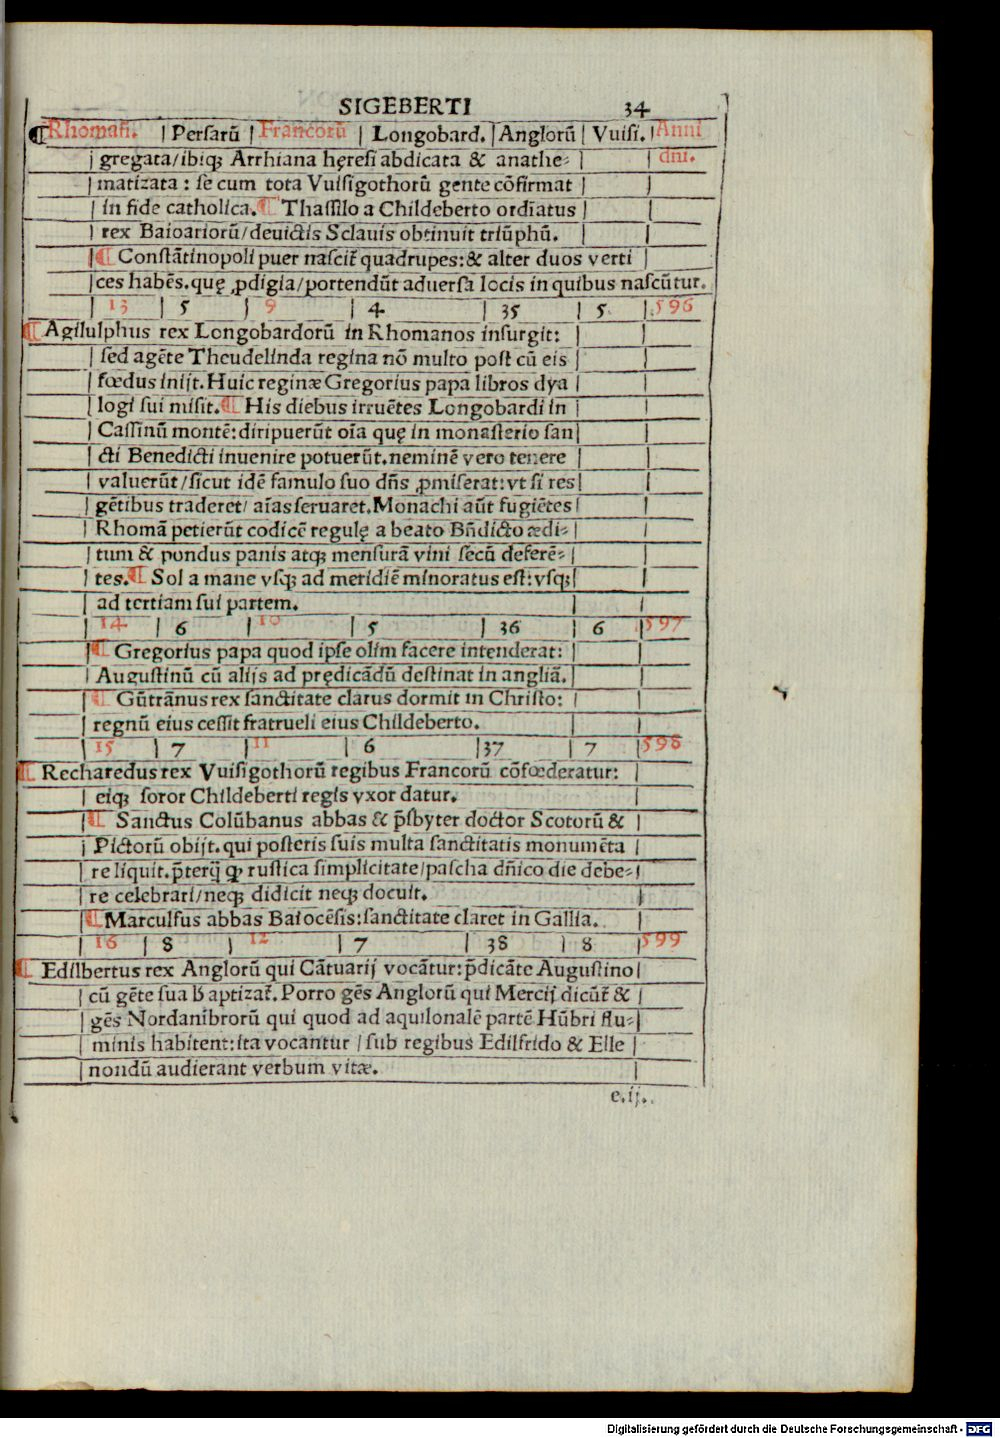 SIGEBERTI 34
¶Rhomañ. | Persarū | Francorū | Longobard. | Anglorū | Vuisi. | Anni
gregata/ibiq; Arrhiana hęresi abdicata & anathe⸗ dñi.
matizata : se cum tota Vuisigothorū gente cōfirmat
in fide catholica. ¶ Thassilo a Childeberto ordīatus
rex Baioariorū/deuictis Sclauis obtinuit triūphū.
¶ Constātinopoli puer nascit̄ quadrupes:& alter duos verti
ces habēs.quę ꝓdigia/portendūt aduersa locis in quibus nascūtur.
13 | 5 | 9 | 4 | 35 | 5 | 596
¶ Agilulphus rex Longobardorū in Rhomanos insurgit:
sed agēte Theudelinda regina nō multo post cū eis
fœdus inijt. Huic reginæ Gregorius papa libros dya
logi sui misit. ¶ His diebus irruētes Longobardi in
Cassinū montē:diripuerūt oīa quę in monasterio san
cti Benedicti inuenire potuerūt.neminē vero tenere
valuerūt/sicut idē famulo suo dñs ꝓmiserat:vt si res
gētibus traderet/ aīas seruaret. Monachi aūt fugiētes
Rhomā petierūt codicē regulę a beato Bñdicto ædi⸗
tum & pondus panis atq; mensurā vini secū deferē⸗
tes. ¶ Sol a mane vsq; ad meridiē minoratus est:vsq;
ad tertiam sui partem.
14 | 6 | 10 | 5 | 36 | 6 | 597
¶ Gregorius papa quod ipse olim facere intenderat:
Augustinū cū alijs ad prędicādū destinat in angliā.
¶ Gūtrānus rex sanctitate clarus dormit in Christo:
regnū eius cessit fratrueli eius Childeberto.
15 | 7 | 11 | 6 | 37 | 7 | 598
¶ Recharedus rex Vuisigothorū regibus Francorū cōfœderatur:
eiq; soror Childeberti regis vxor datur.
¶ Sanctus Colūbanus abbas & p̄sbyter doctor Scotorū &
Pictorū obijt. qui posteris suis multa sanctitatis monumēta
reliquit. p̄terq̄ ꝙ rustica simplicitate/pascha dñico die debe⸗
re celebrari/neq; didicit neq; docuit.
¶ Marculfus abbas Baiocēsis:sanctitate claret in Gallia.
16 | 8 | 12 | 7 | 38 | 8 | 599
¶ Edilbertus rex Anglorū qui Cātuarij vocātur:p̄dicāte Augustino
cū gēte sua baptizat̄. Porro gēs Anglorū qui Mercij dicūt̄ &
gēs Nordanibrorū qui quod ad aquilonalē partē Hūbri flu⸗
minis habitent:ita vocantur / sub regibus Edilfrido & Elle
nondū audierant verbum vitæ.
e.ij.
Digitalisierung gefördert durch die Deutsche Forschungsgemeinschaft - DFG